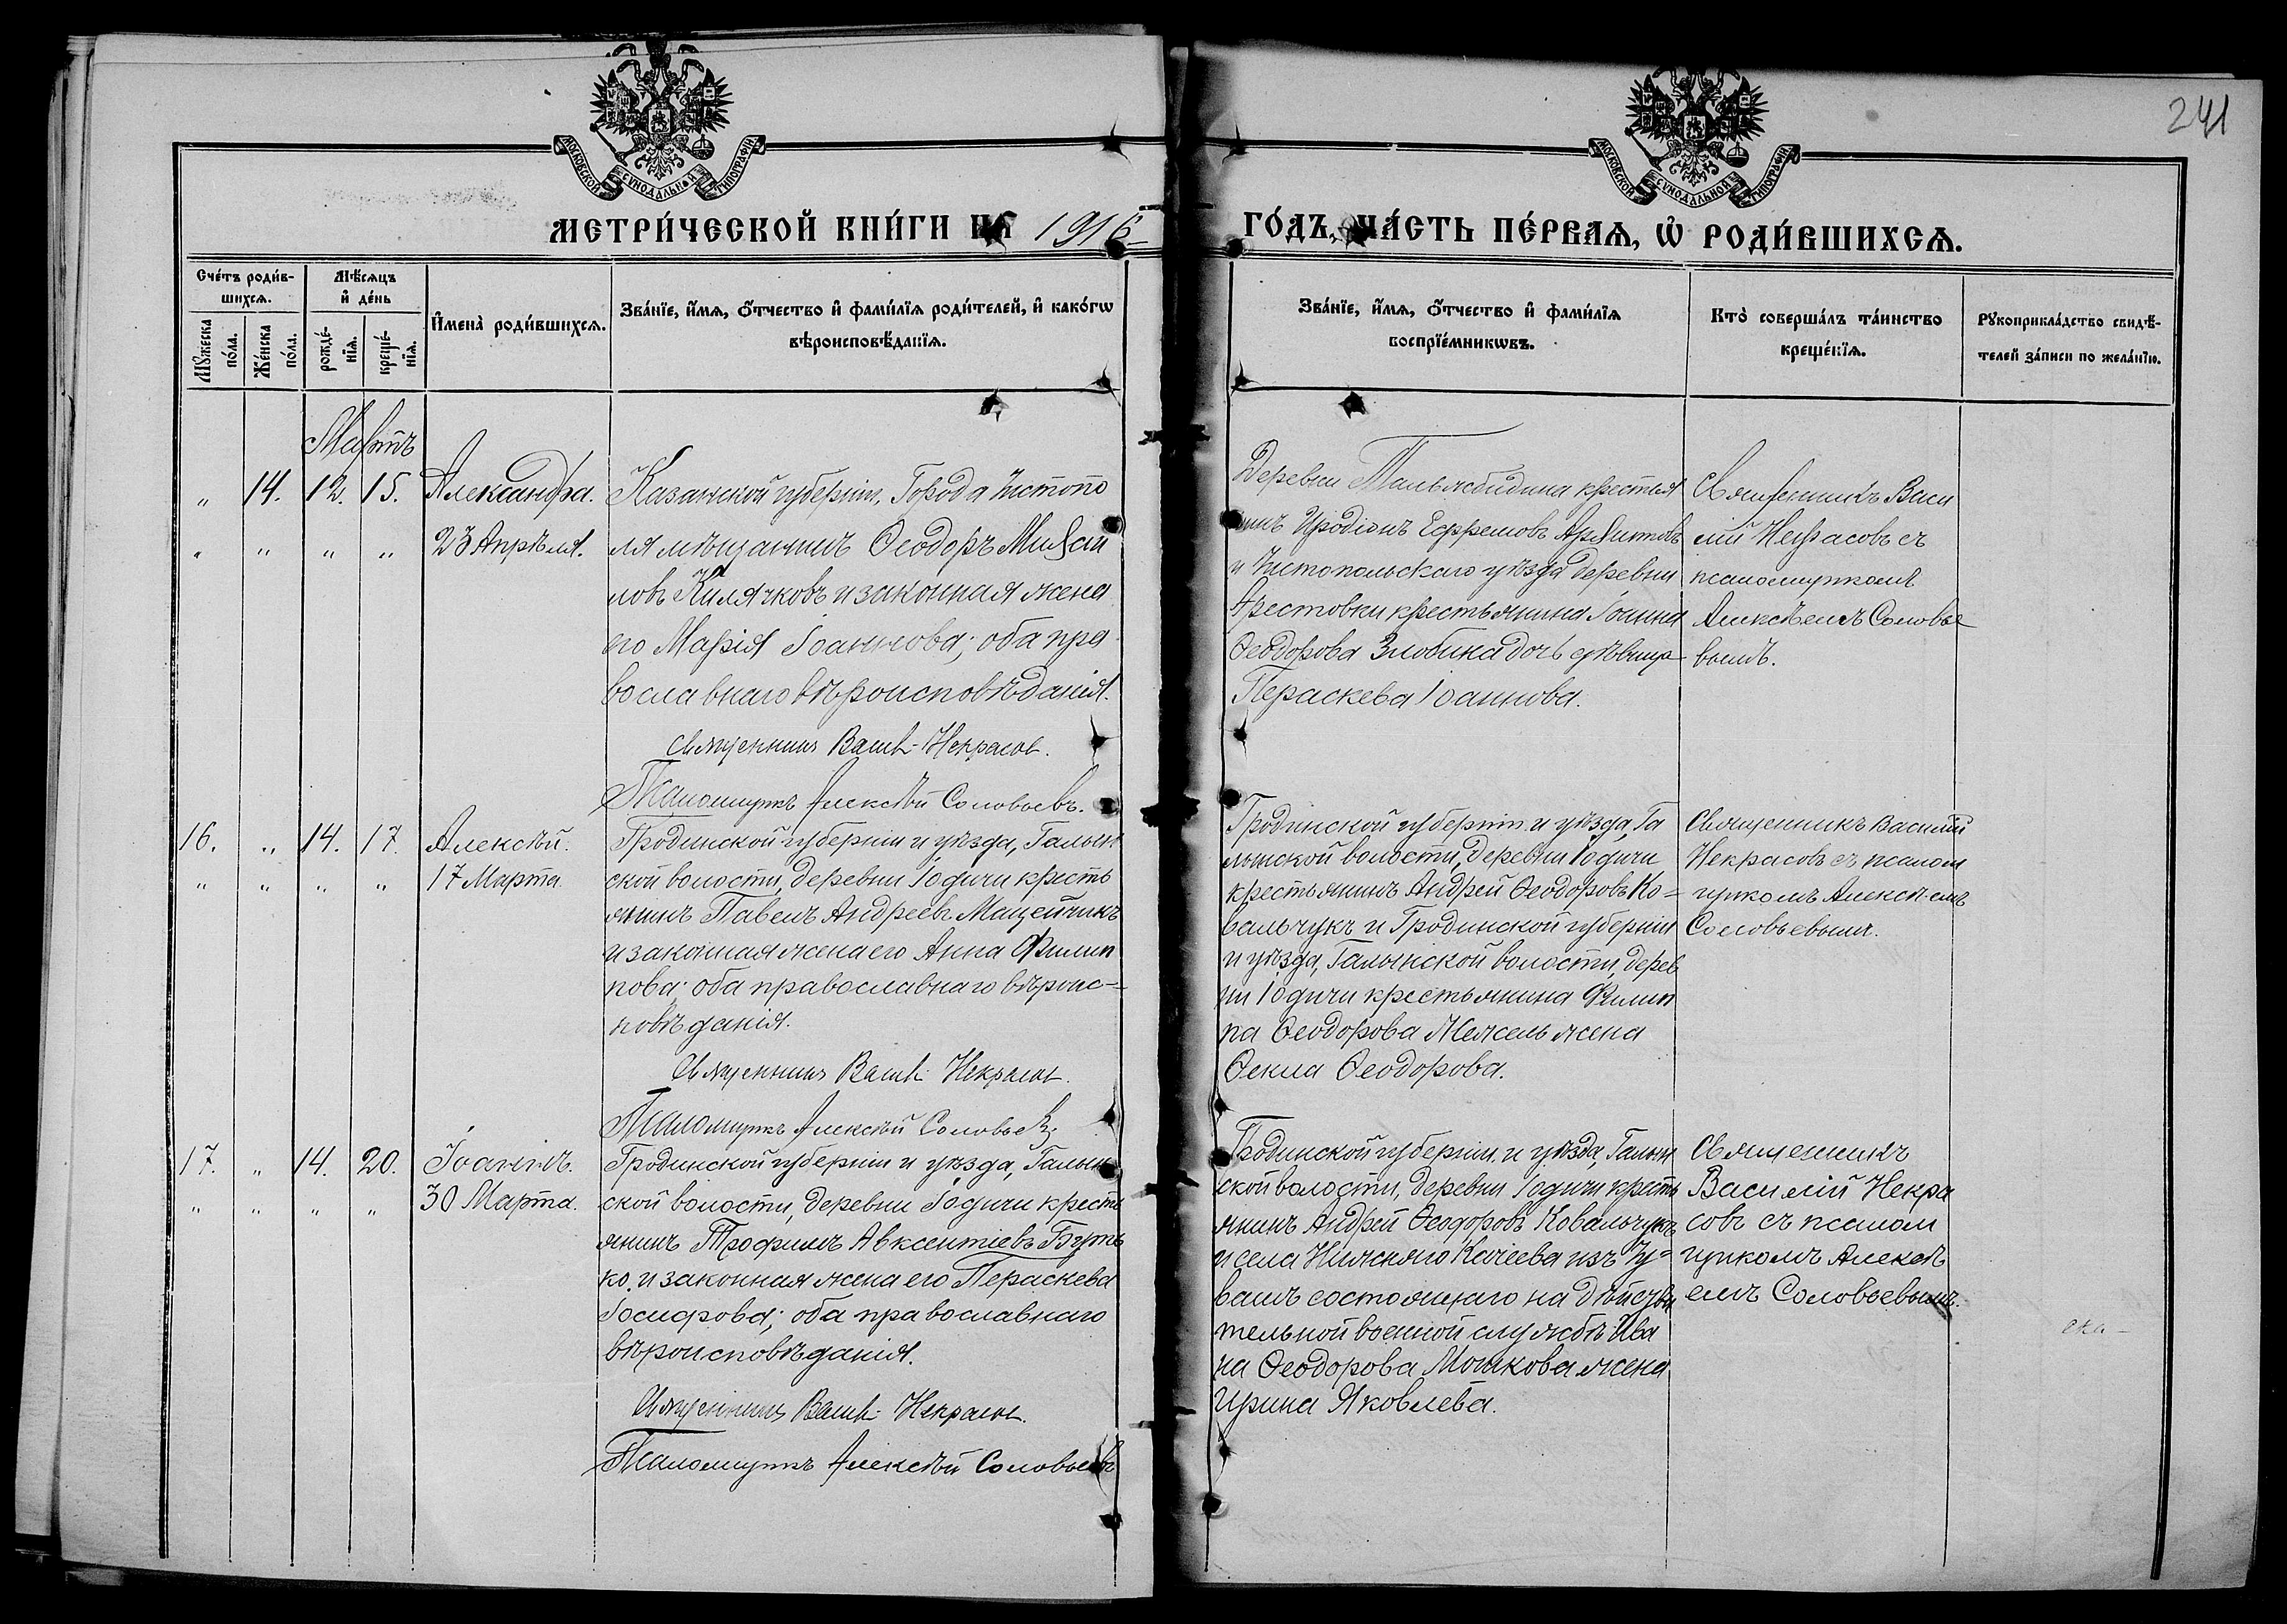 241
МОСКОВСКОЙ СУНОДАЛЬНОЙ ТИПОГРАФІИ
МОСКОВСКОЙ СУНОДАЛЬНОЙ ТИПОГРАФІИ
МЕТРИ́ЧЕСКОЙ КНИ́ГИ НА 1916
ГО́ДЪ, ЧА́СТЬ ПЕ́РВАѦ, Ѡ҆ РОДИ́ВШИХСѦ.
Сче́тъ роди́в-
шихсѧ.
Мꙋжеска
по́ла.
Же́нска
по́ла.
Мѣ́сѧцъ
и҆ де́нь
рожде́-
нїѧ.
креще́-
нїѧ.
И҆мена̀ роди́вшихсѧ.
Зва́нїе, и҆́мѧ, ѻ҆́тчество и҆ фами́лїѧ роди́телей, и҆ како́гѡ
вѣроисповѣ́данїѧ.
Зва́нїе, и҆́мѧ, ѻ҆́тчество и҆ фами́лїѧ
воспрїе́мникѡвъ.
Кто̀ соверша́лъ та́инство
креще́нїѧ.
Рꙋкоприкла́дство свидѣ́-
телей за́писи по жела́нїю.
Мартъ
„ 14. 12. 15. Александра.
„ „ „ „ 23 Апрѣля.
Казанской губерніи, Города Чистопо
ля мѣщанинъ Ѳеодоръ Михаи
ловъ Килячковъ и законная жена
его Марія Іоаннова; оба пра
вославнаго вѣроисповѣданія.
Священникъ Васил. Некрасов.
Псаломщикъ Алексѣй Соловьевъ.
Деревни крестья
нинъ Иродіонъ Ефремовъ Архитовъ
и Чистопольскаго уѣзда деревни
Арестовки крестьянина Іоанна
Ѳеодорова Злобина дочь дѣвица
Параскева Іоаннова.
Священникъ Васи
лій Некрасовъ съ
псаломщикомъ
Алексѣемъ Соловье
вымъ.
16. „ 14. 17. Алексѣй.
„ „ „ „ 17 Марта.
Гродненской губерніи и уѣзда, Галын
ской волости, деревни Іодичи кресть
янинъ Павелъ Андреевъ Мацейчикъ
и законная жена его Анна Филип
пова; оба православнаго вѣроис=
повѣданія.
Священникъ Васил. Некрасов.
Псаломщикъ Алексѣй Соловьевъ
Гродненской губерніи и уѣзда, Га
лынской волости, деревни Іодичи
крестьянинъ Андрей Ѳеодоровъ Ко=
вальчукъ и Гродненской губерніи
и уѣзда, Галынской волости, дерев
ни Іодичи крестьянина Филип
па Ѳеодорова жена
Ѳекла Ѳеодорова.
Священникъ Василій
Некрасовъ съ псалом
щикомъ Алексѣемъ
Соловьевымъ.
17. „ 14. 20. Іоаннъ.
„ „ „ „ 30 Марта.
Гродненской губерніи и уѣзда, Галын
ской волости, деревни Іодичи кресть
янинъ Трофимъ Авксентіевъ Буть
ко и законная жена его Параскева
Іосифова; оба православнаго
вѣроисповѣданія.
Священникъ Васил. Некрасов.
Псаломщикъ Алексѣй Соловьевъ
Гродненской губерніи и уѣзда, Галын
ской волости, деревни Іодичи кресть
янинъ Андрей Ѳеодоровъ Ковальчукъ
и села Нижняго Качеева изъ Чу=
вашъ состоящаго на дѣйстви
тельной военной службѣ Ива
на Ѳеодорова Мошкова жена
Ирина Яковлева.
Священникъ
Василій Некра
совъ съ псалом
щикомъ Алексѣ
емъ Соловьевымъ.